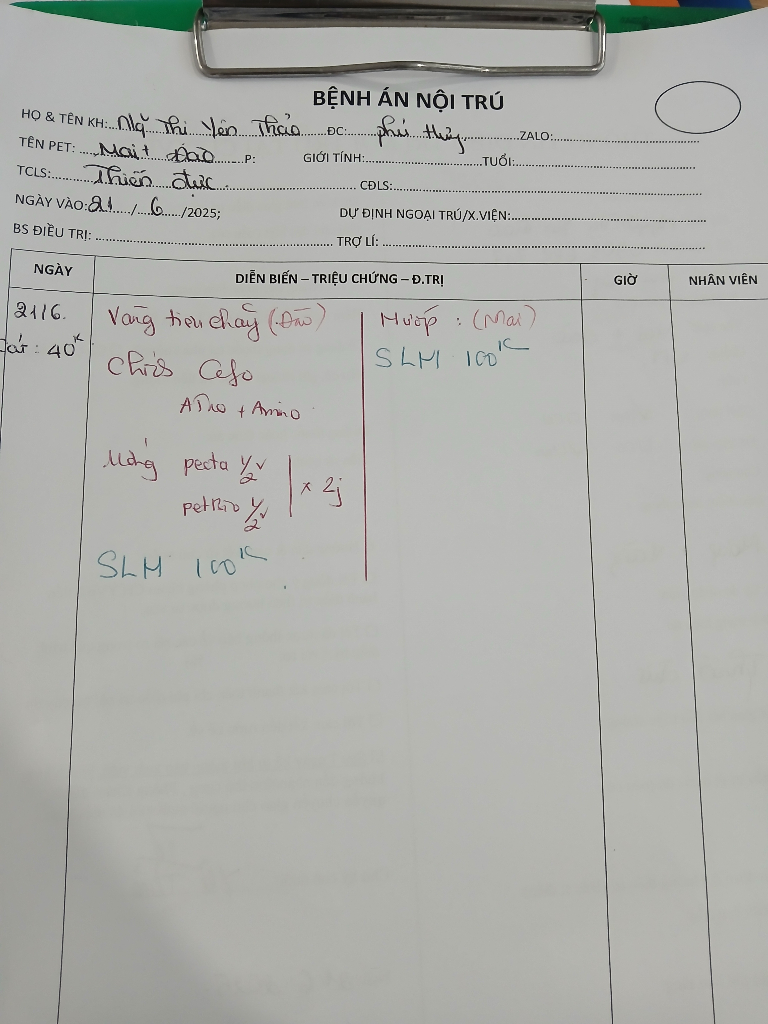 BỆNH ÁN NỘI TRÚ
HỌ & TÊN KH: Ng~ Thị Yến Thảo ĐC: phú thủy ZALO:
TÊN PET: Mai + Đào P: GIỚI TÍNH: TUỔI:
TCLS: Thiến đực CĐLS:
NGÀY VÀO: 21 / 6 /2025; DỰ ĐỊNH NGOẠI TRÚ/X.VIỆN:
BS ĐIỀU TRỊ: TRỢ LÍ:
NGÀY DIỄN BIẾN – TRIỆU CHỨNG – Đ.TRỊ GIỜ NHÂN VIÊN
21/6. Vàng tiêu chảy (Đào) Mướp : (Mai)
: 40K Chích Cefo SLM 100K
ATro + Amino
Uống pecta 1/2v
petBio 1/2v x 2j
SLM 100K